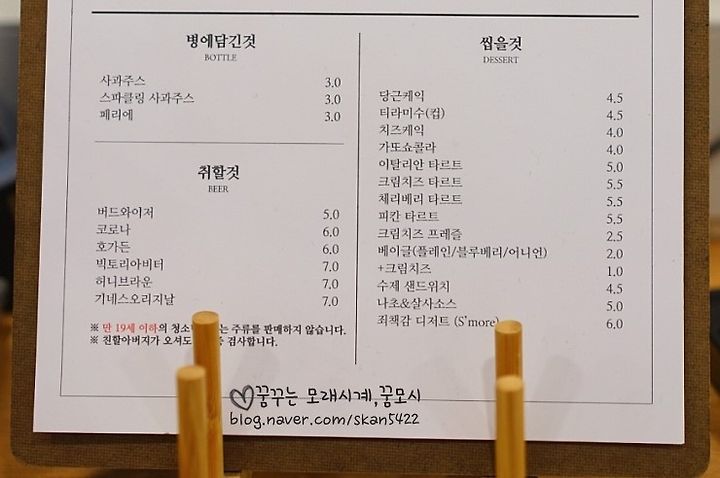 병에담긴것
BOTTLE
사과주스 3.0
스파클링 사과주스 3.0
페리에 3.0
취할것
BEER
버드와이저 5.0
코로나 6.0
호가든 6.0
빅토리아비터 7.0
허니브라운 7.0
기네스오리지날 7.0
※ 만 19세 이하의 청소 는 주류를 판매하지 않습니다.
※ 친할아버지가 오셔도 검사합니다.
씹을것
DESSERT
당근케익 4.5
티라미수(컵) 4.5
치즈케익 4.0
가또쇼콜라 4.0
이탈리안 타르트 5.0
크림치즈 타르트 5.5
체리베리 타르트 5.5
피칸 타르트 5.5
크림치즈 프레즐 2.5
베이글(플레인/블루베리/어니언) 2.0
+크림치즈 1.0
수제 샌드위치 4.5
나초&살사소스 5.0
죄책감 디저트 (S'more) 6.0
꿈꾸는 모래시계,꿈모시
blog.naver.com/skan5422